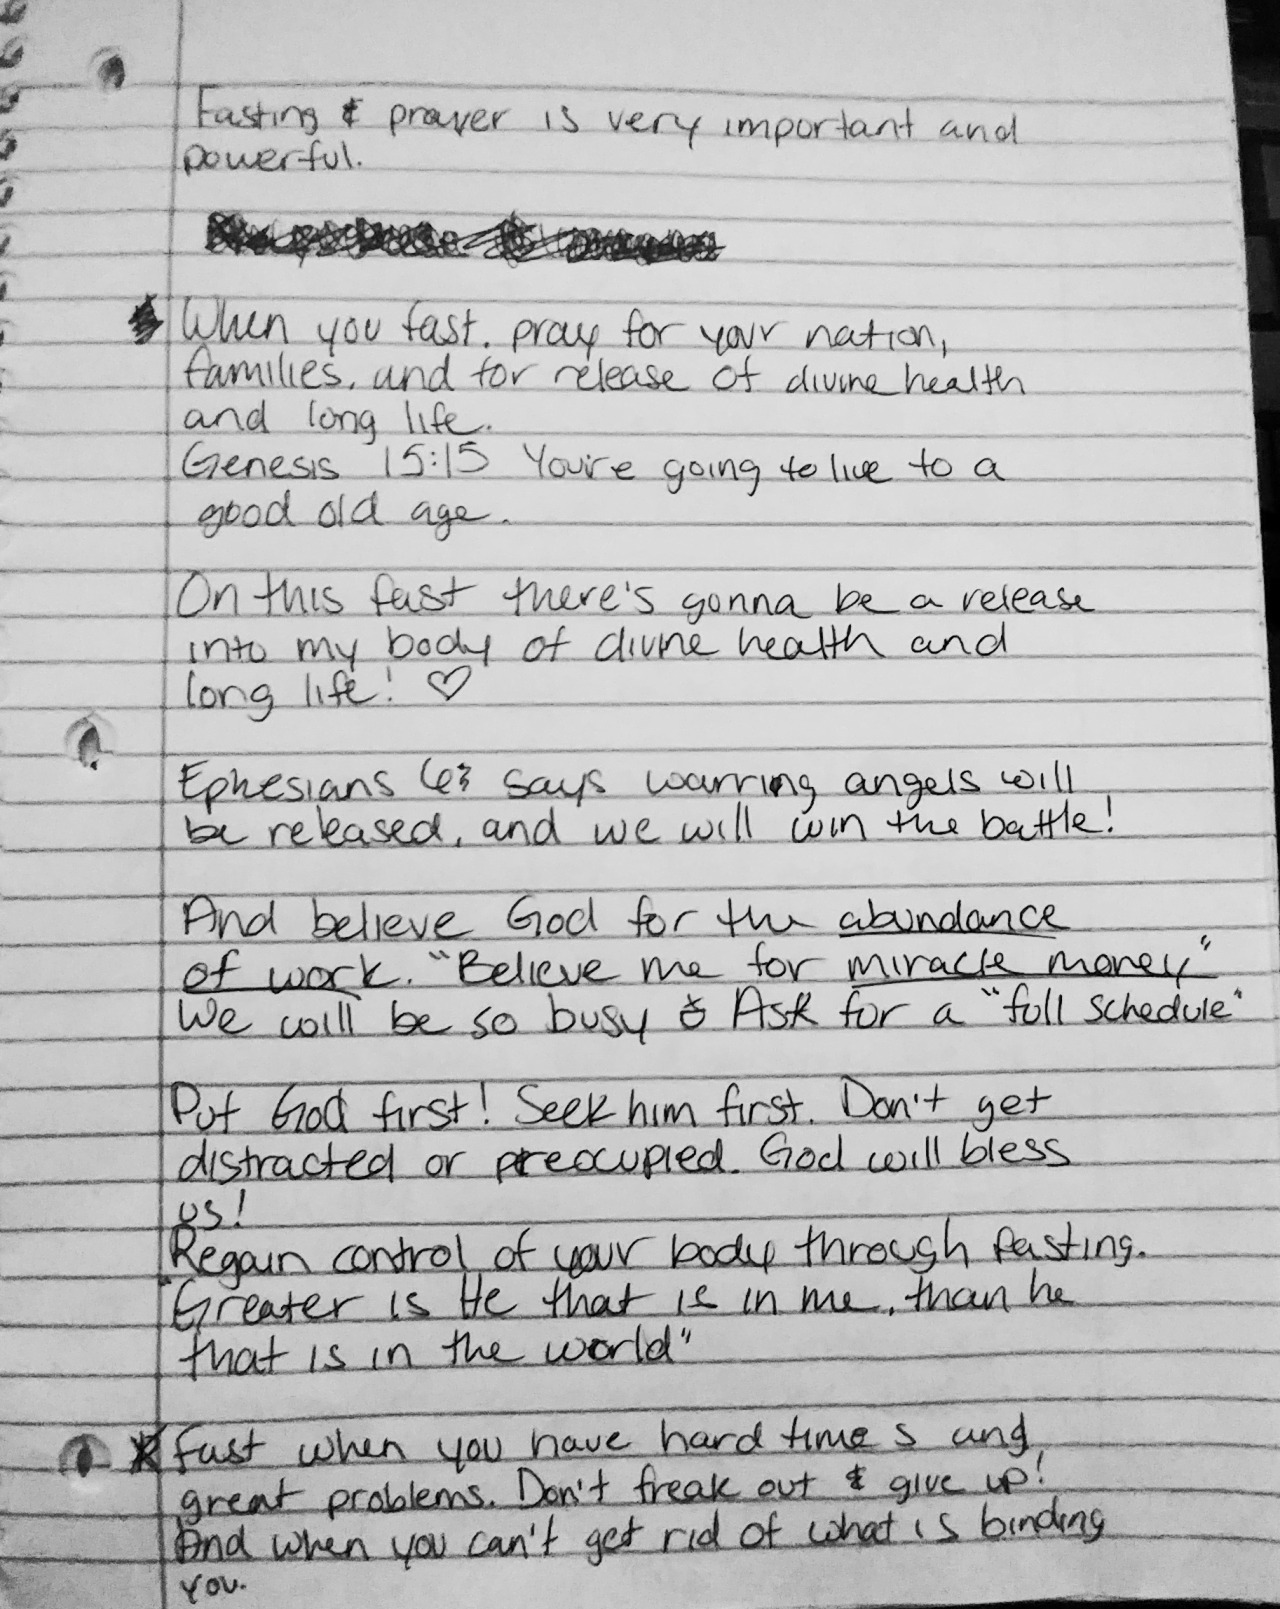 Fasting & prayer is very important and
powerful.
When you fast. pray for your nation,
families, and for release of divine health
and long life.
Genesis 15:15 You're going to live to a
good old age.
On this fast there's gonna be a release
into my body of divine health and
long life! ♡
Ephesians 6: says warring angels will
be released, and we will win the battle!
And believe God for the abundance
of work. "Believe me for miracle money"
We will be so busy Ask for a "full schedule"
Put God first! Seek him first. Don't get
distracted or preoccupied. God will bless
us!
Regain control of your body through fasting.
"Greater is He that is in me, than he
that is in the world"
Fast when you have hard times and
great problems. Don't freak out & give up!
And when you can't get rid of what is binding
you.